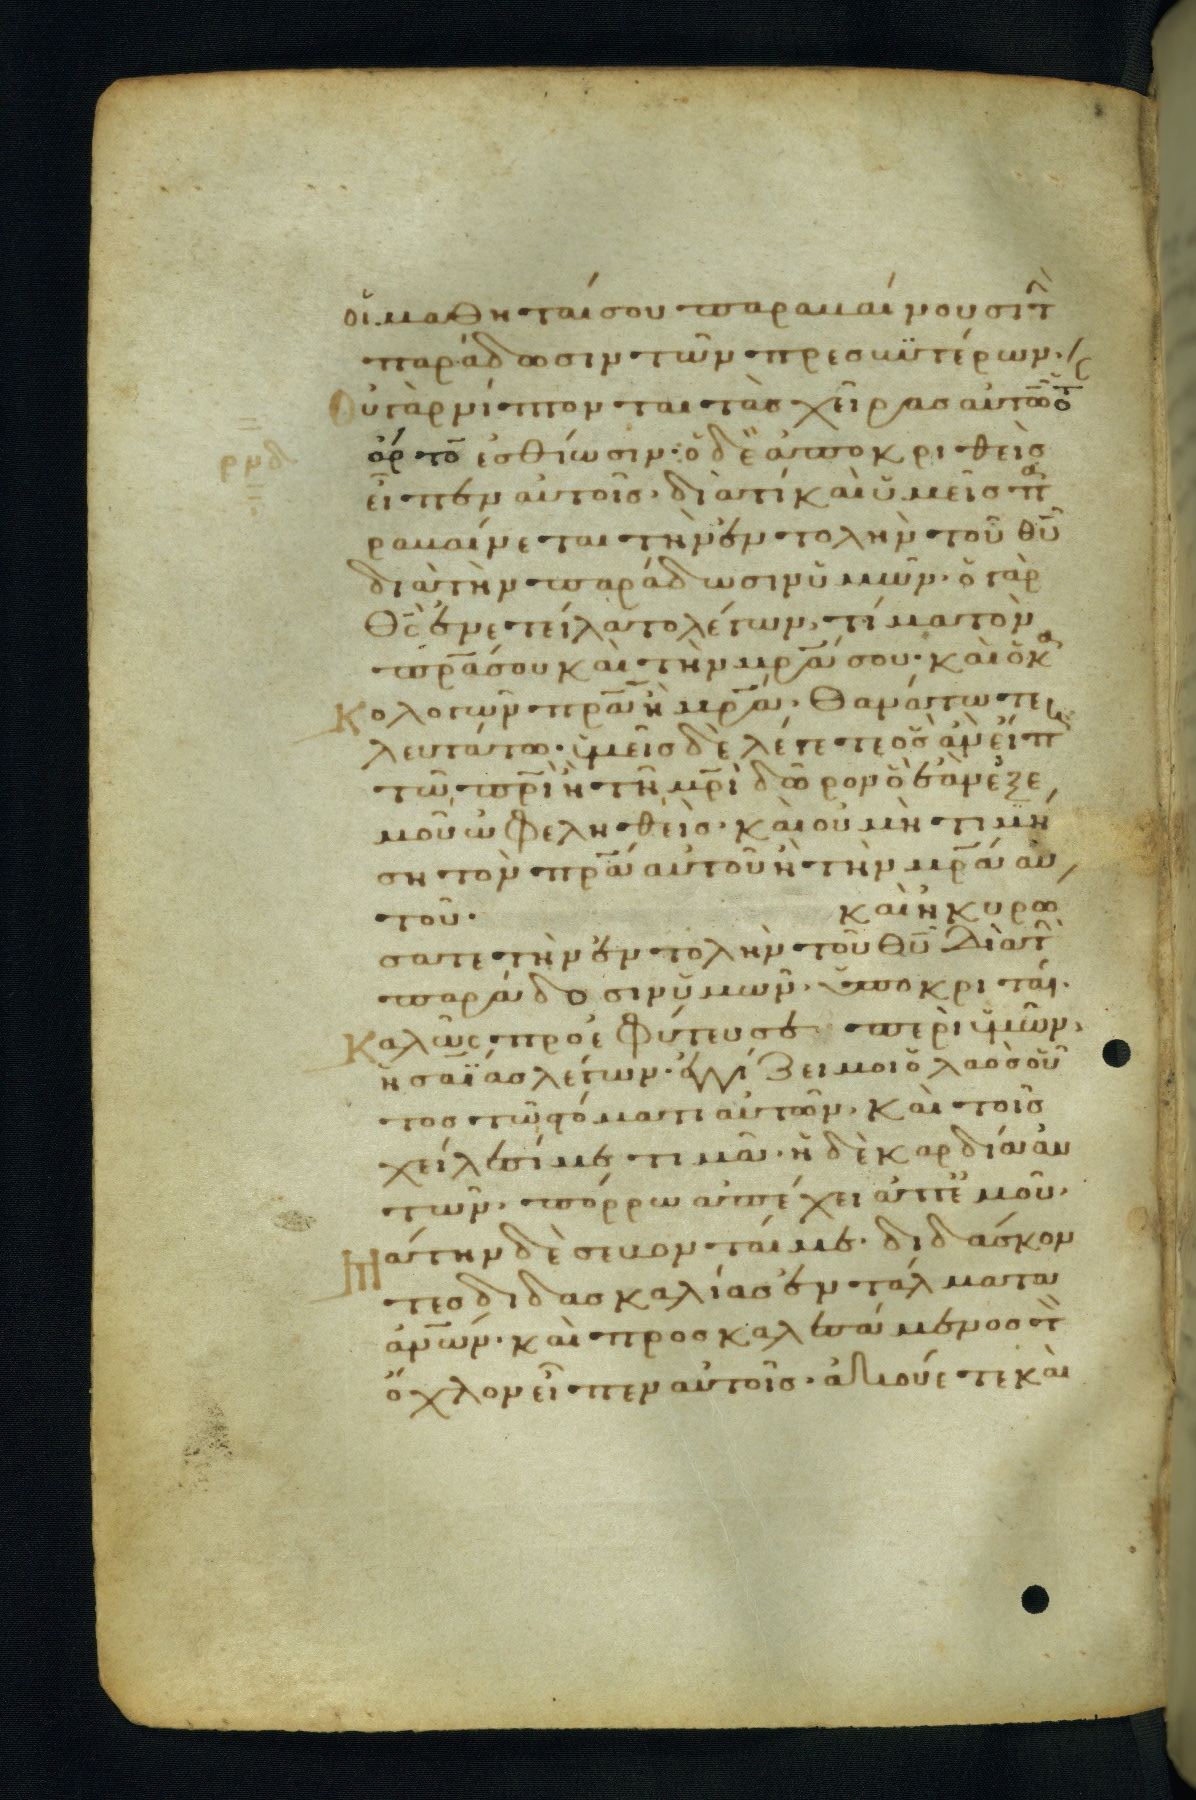 οἵ μαθηταί σου παραβαίνουσι τ(ὴν)
παράδωσιν τῶν πρεσβϋτέρων·
Οὐ γὰρ νίπτονται τὰς χεῖρας αὐτῶ ὅτ
ἄρτο ἐσθίωσιν· ὁ δὲ ἀποκριθεὶς
εἶπεν αὐτοῖς· διὰτί καὶ ὑμεῖς πα
ραβαίνεται τὴν ἐντολὴν τοῦ θῦ
διὰ τὴν παράδωσιν ὑμῶν· ὁ γὰρ
θς ἐνετείλατο λέγων, τίμα τὸν
πρα σου καὶ τὴν μρα σου· καὶ ὁ κα
Κολογῶν πρα ἢ μρα· θανάτω τε
λευτάτω· ὑμεῖς δὲ λέγετε ὃς ἂν εἴπ
τῶ πρι ἢ τῆ μρι δῶρον ὃ ἐὰν ἐξ ε
μοῦ ὠφεληθεὶς· καὶ οὐ μὴ τιμή
ση τὸν πρα αὐτοῦ ἢ τὴν μρα αὐ
τοῦ· καὶ ἠκυρώ
σατε τὴν ἐντολὴν τοῦ θῦ διὰ τ(ὴν)
παράδοσιν ὑμῶν· ὑποκριταί·
Καλῶς προεφήτευσε περὶ ὑμῶν,
ἡσαΐας λέγων· ἐγγίζει μοι ὁ λαὸς οὗ
τος τῶ στόματι αὐτῶν, καὶ τοῖς
χείλεσί με τιμᾶ· ἡ δὲ καρδία αὐ
τῶν, πόρρω ἀπέχει ἀπ' ἐμοῦ·
Μάτην δὲ σέβονταί με· διδάσκον
τες διδασκαλίας ἐντάλματα
ἀνων· καὶ προσκαλεσάμενος τ(ὸν)
ὄχλον εἶπεν αὐτοῖς· ἀκούετε καὶ